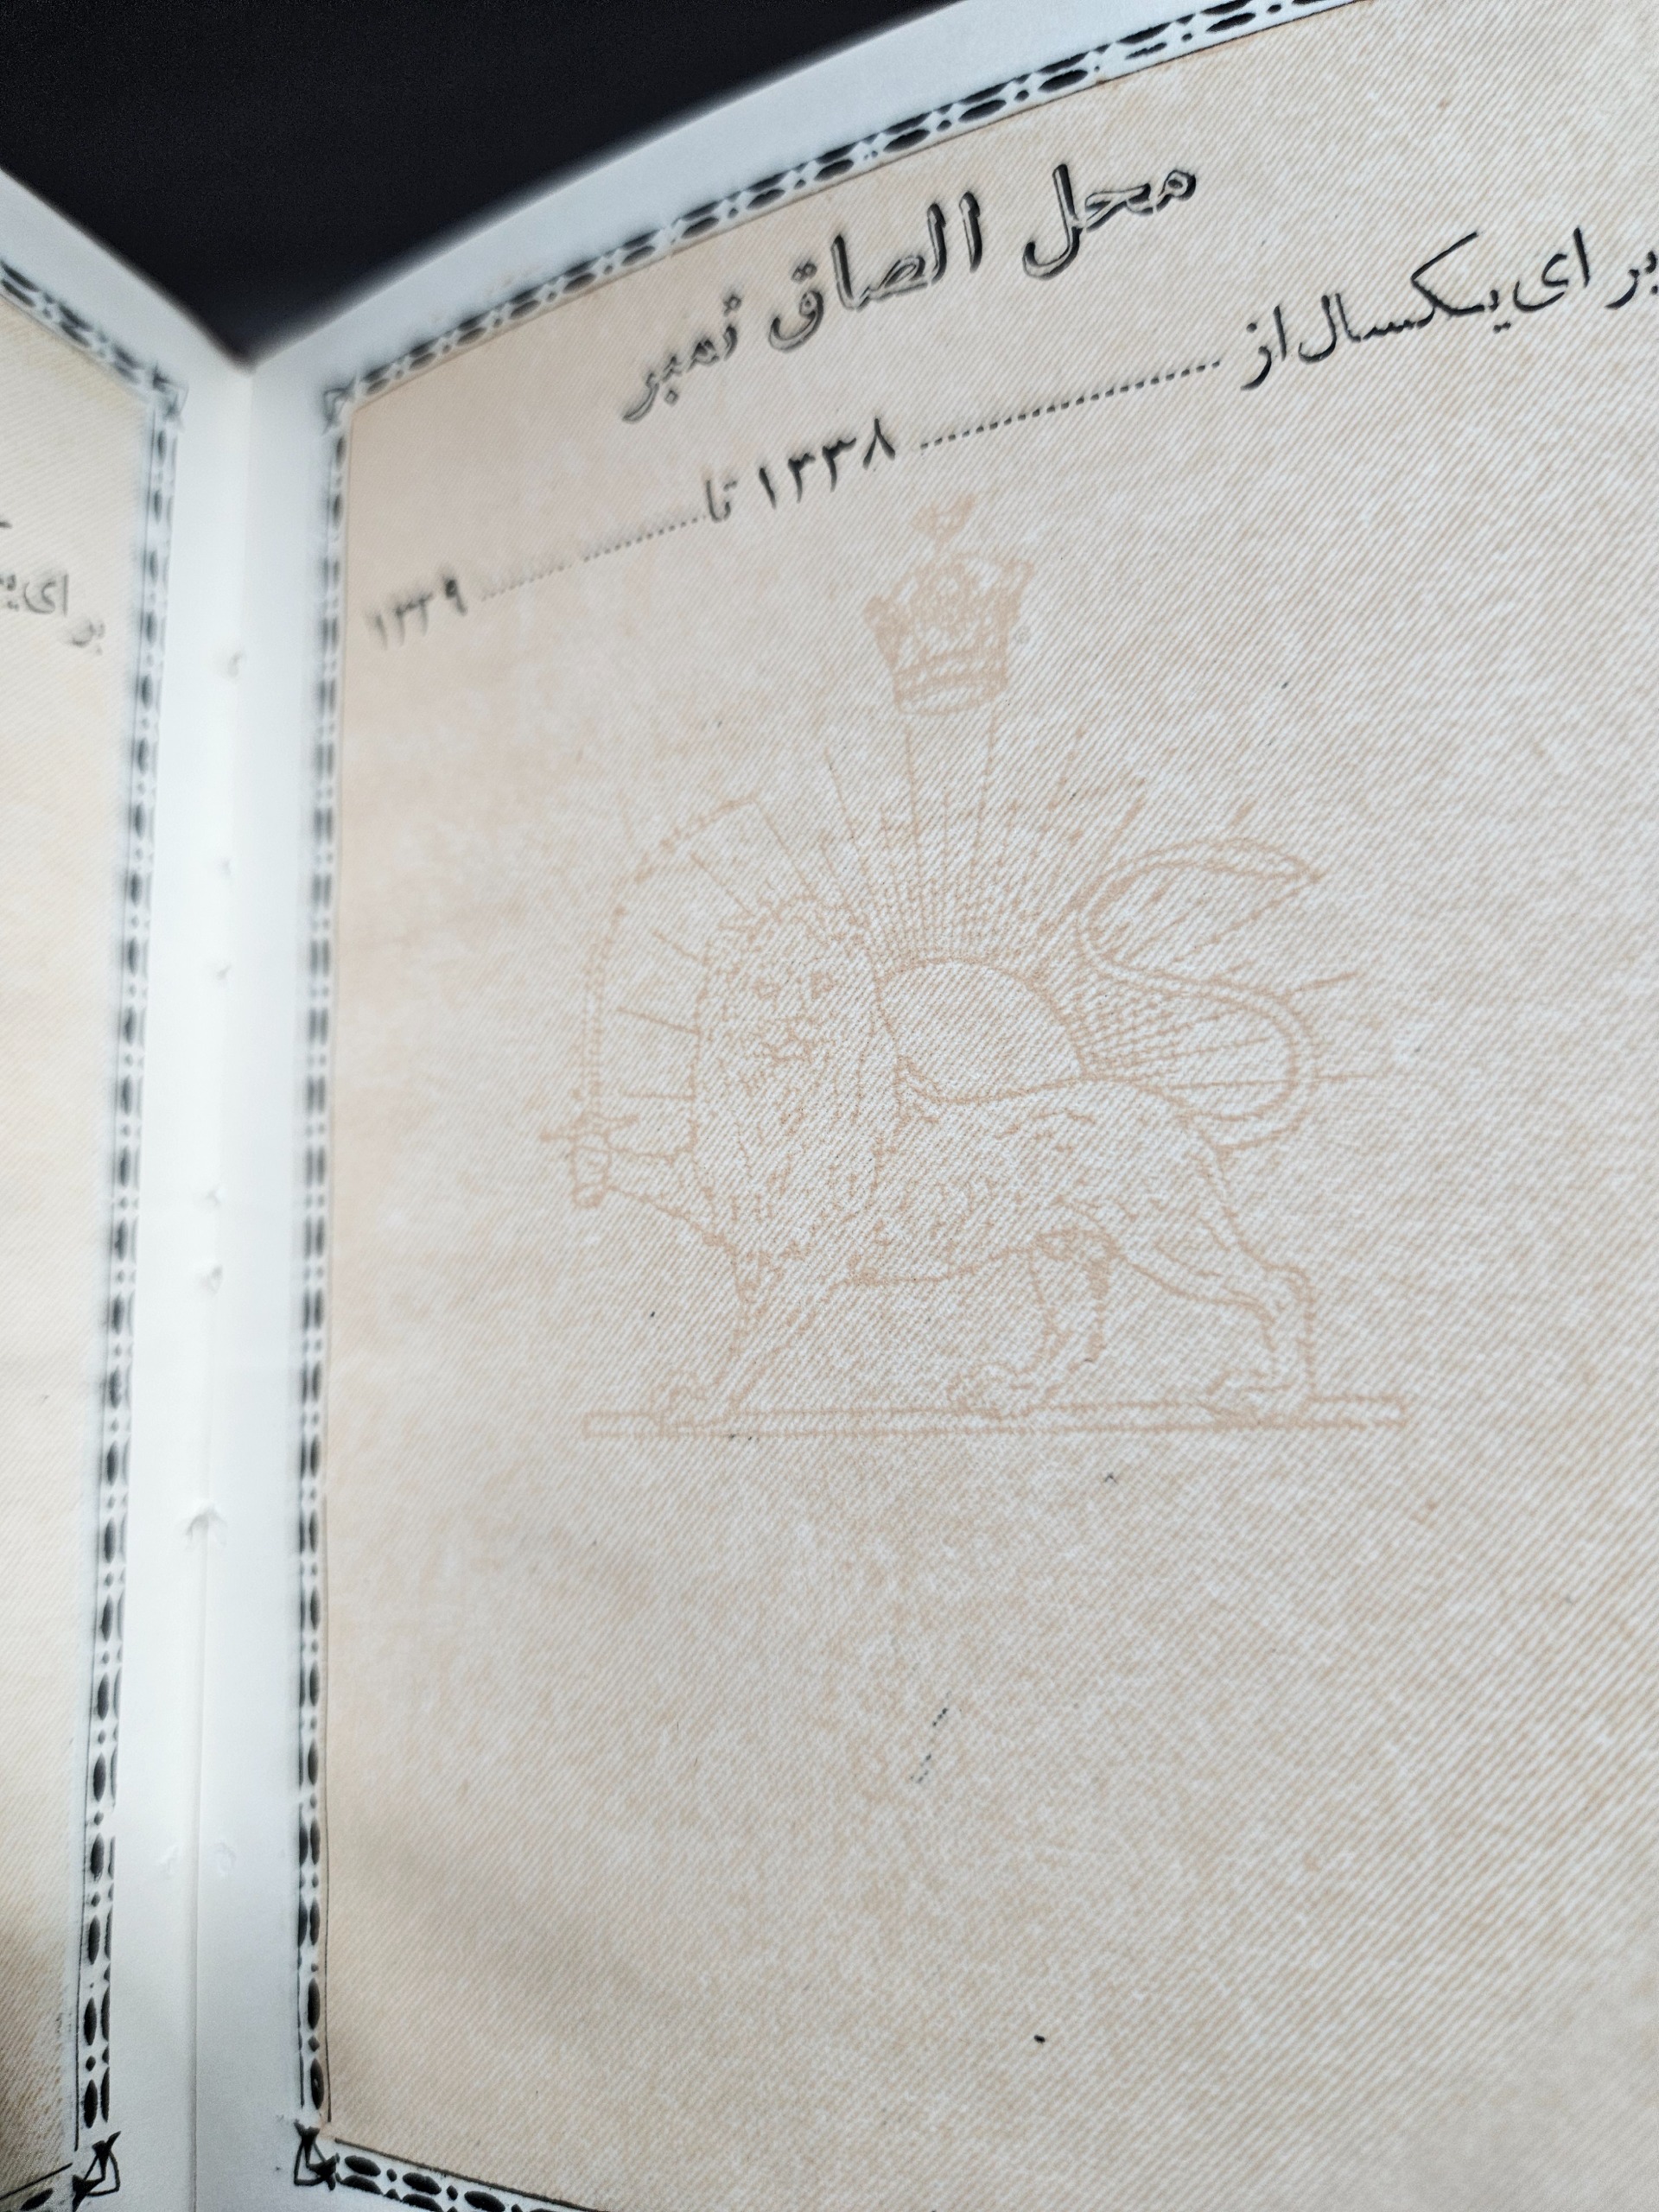 محل الصاق تمبر
برای یکسال از .................... ۱۳۳۸ تا .................... ۱۳۳۹
برای